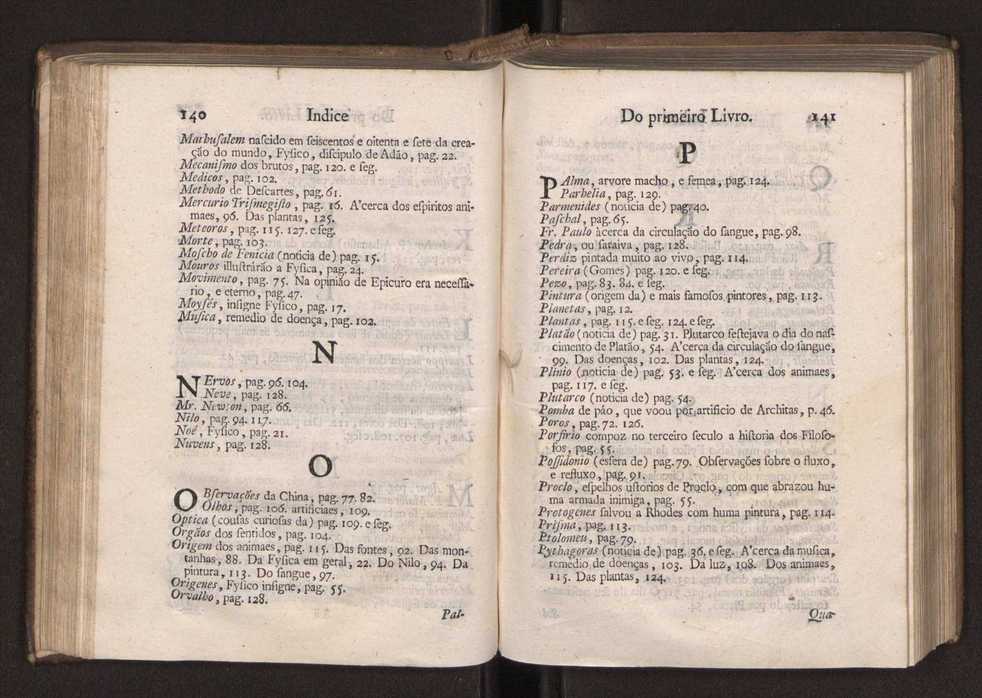 140 Indice
Mathusalem nascido em seiscentos e oitenta e sete da crea-
ção do mundo, Fysico, discipulo de Adão, pag. 22.
Mecanismo dos brutos, pag. 120. e seg.
Medicos, pag. 102.
Methodo de Descartes, pag. 61.
Mercurio Trismegisto, pag. 16. A'cerca dos espiritos ani-
maes, 96. Das plantas, 125.
Meteoros, pag. 115. 127. e seg.
Morte, pag. 103.
Moscho de Fenicia (noticia de) pag. 15.
Mouros illustrárão a Fysica, pag. 24.
Movimento, pag. 75. Na opinião de Epicuro era necessa-
rio, e eterno, pag. 47.
Moysés, insigne Fysico, pag. 17.
Musica, remedio de doença, pag. 102.
N
NErvos, pag. 96. 104.
Neve, pag. 128.
Mr. Newton, pag. 66.
Nilo, pag. 94. 117.
Noé, Fysico, pag. 21.
Nuvens, pag. 128.
O
OBservações da China, pag. 77. 82.
Olhos, pag. 106. artificiaes, 109.
Optica (cousas curiosas da) pag. 109. e seg.
Orgãos dos sentidos, pag. 104.
Origem dos animaes, pag. 115. Das fontes, 92. Das mon-
tanhas, 88. Da Fysica em geral, 22. Do Nilo, 94. Da
pintura, 113. Do sangue, 97.
Origenes, Fysico insigne, pag. 55.
Orvalho, pag. 128.
Pal-
Do primeiro Livro. 141
P
PAlma, arvore macho, e femea, pag. 124.
Parhelia, pag. 129.
Parmenides (noticia de) pag. 40.
Paschal, pag. 65.
Fr. Paulo àcerca da circulação do sangue, pag. 98.
Pedra, ou saraiva, pag. 128.
Perdiz pintada muito ao vivo, pag. 114.
Pereira (Gomes) pag. 120. e seg.
Pezo, pag. 83. 84. e seg.
Pintura (origem da) e mais famosos pintores, pag. 113.
Planetas, pag. 12.
Plantas, pag. 115. e seg. 124. e seg.
Platão (noticia de) pag. 31. Plutarco festejava o dia do nas-
cimento de Platão, 54. A'cerca da circulação do sangue,
99. Das doenças, 102. Das plantas, 124.
Plinio (noticia de) pag. 53. e seg. A'cerca dos animaes,
pag. 117. e seg.
Plutarco (noticia de) pag. 54.
Pomba de páo, que voou por artificio de Architas, p. 46.
Poros, pag. 72. 126.
Porfirio compoz no terceiro seculo a historia dos Filoso-
fos, pag. 55.
Possidonio (esfera de) pag. 79. Observações sobre o fluxo,
e refluxo, pag. 91.
Proclo, espelhos ustorios de Proclo, com que abrazou hu-
ma armada inimiga, pag. 55.
Protogenes salvou a Rhodes com huma pintura, pag. 114.
Prisma, pag. 113.
Ptolomeu, pag. 79.
Pythagoras (noticia de) pag. 36. e seg. A'cerca da musica,
remedio de doenças, 103. Da luz, 108. Dos animaes,
115. Das plantas, 124.
Qua-